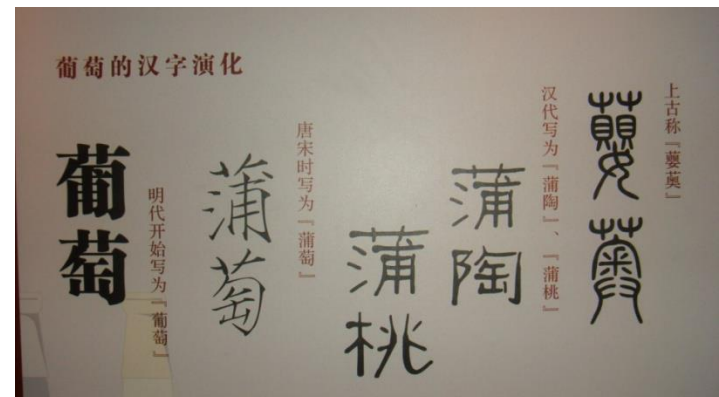 葡萄的汉字演化
上古称『蘡薁』
蘡薁
汉代写为『蒲陶』、『蒲桃』
蒲陶
蒲桃
唐宋时写为『蒲萄』
蒲萄
明代开始写为『葡萄』
葡萄